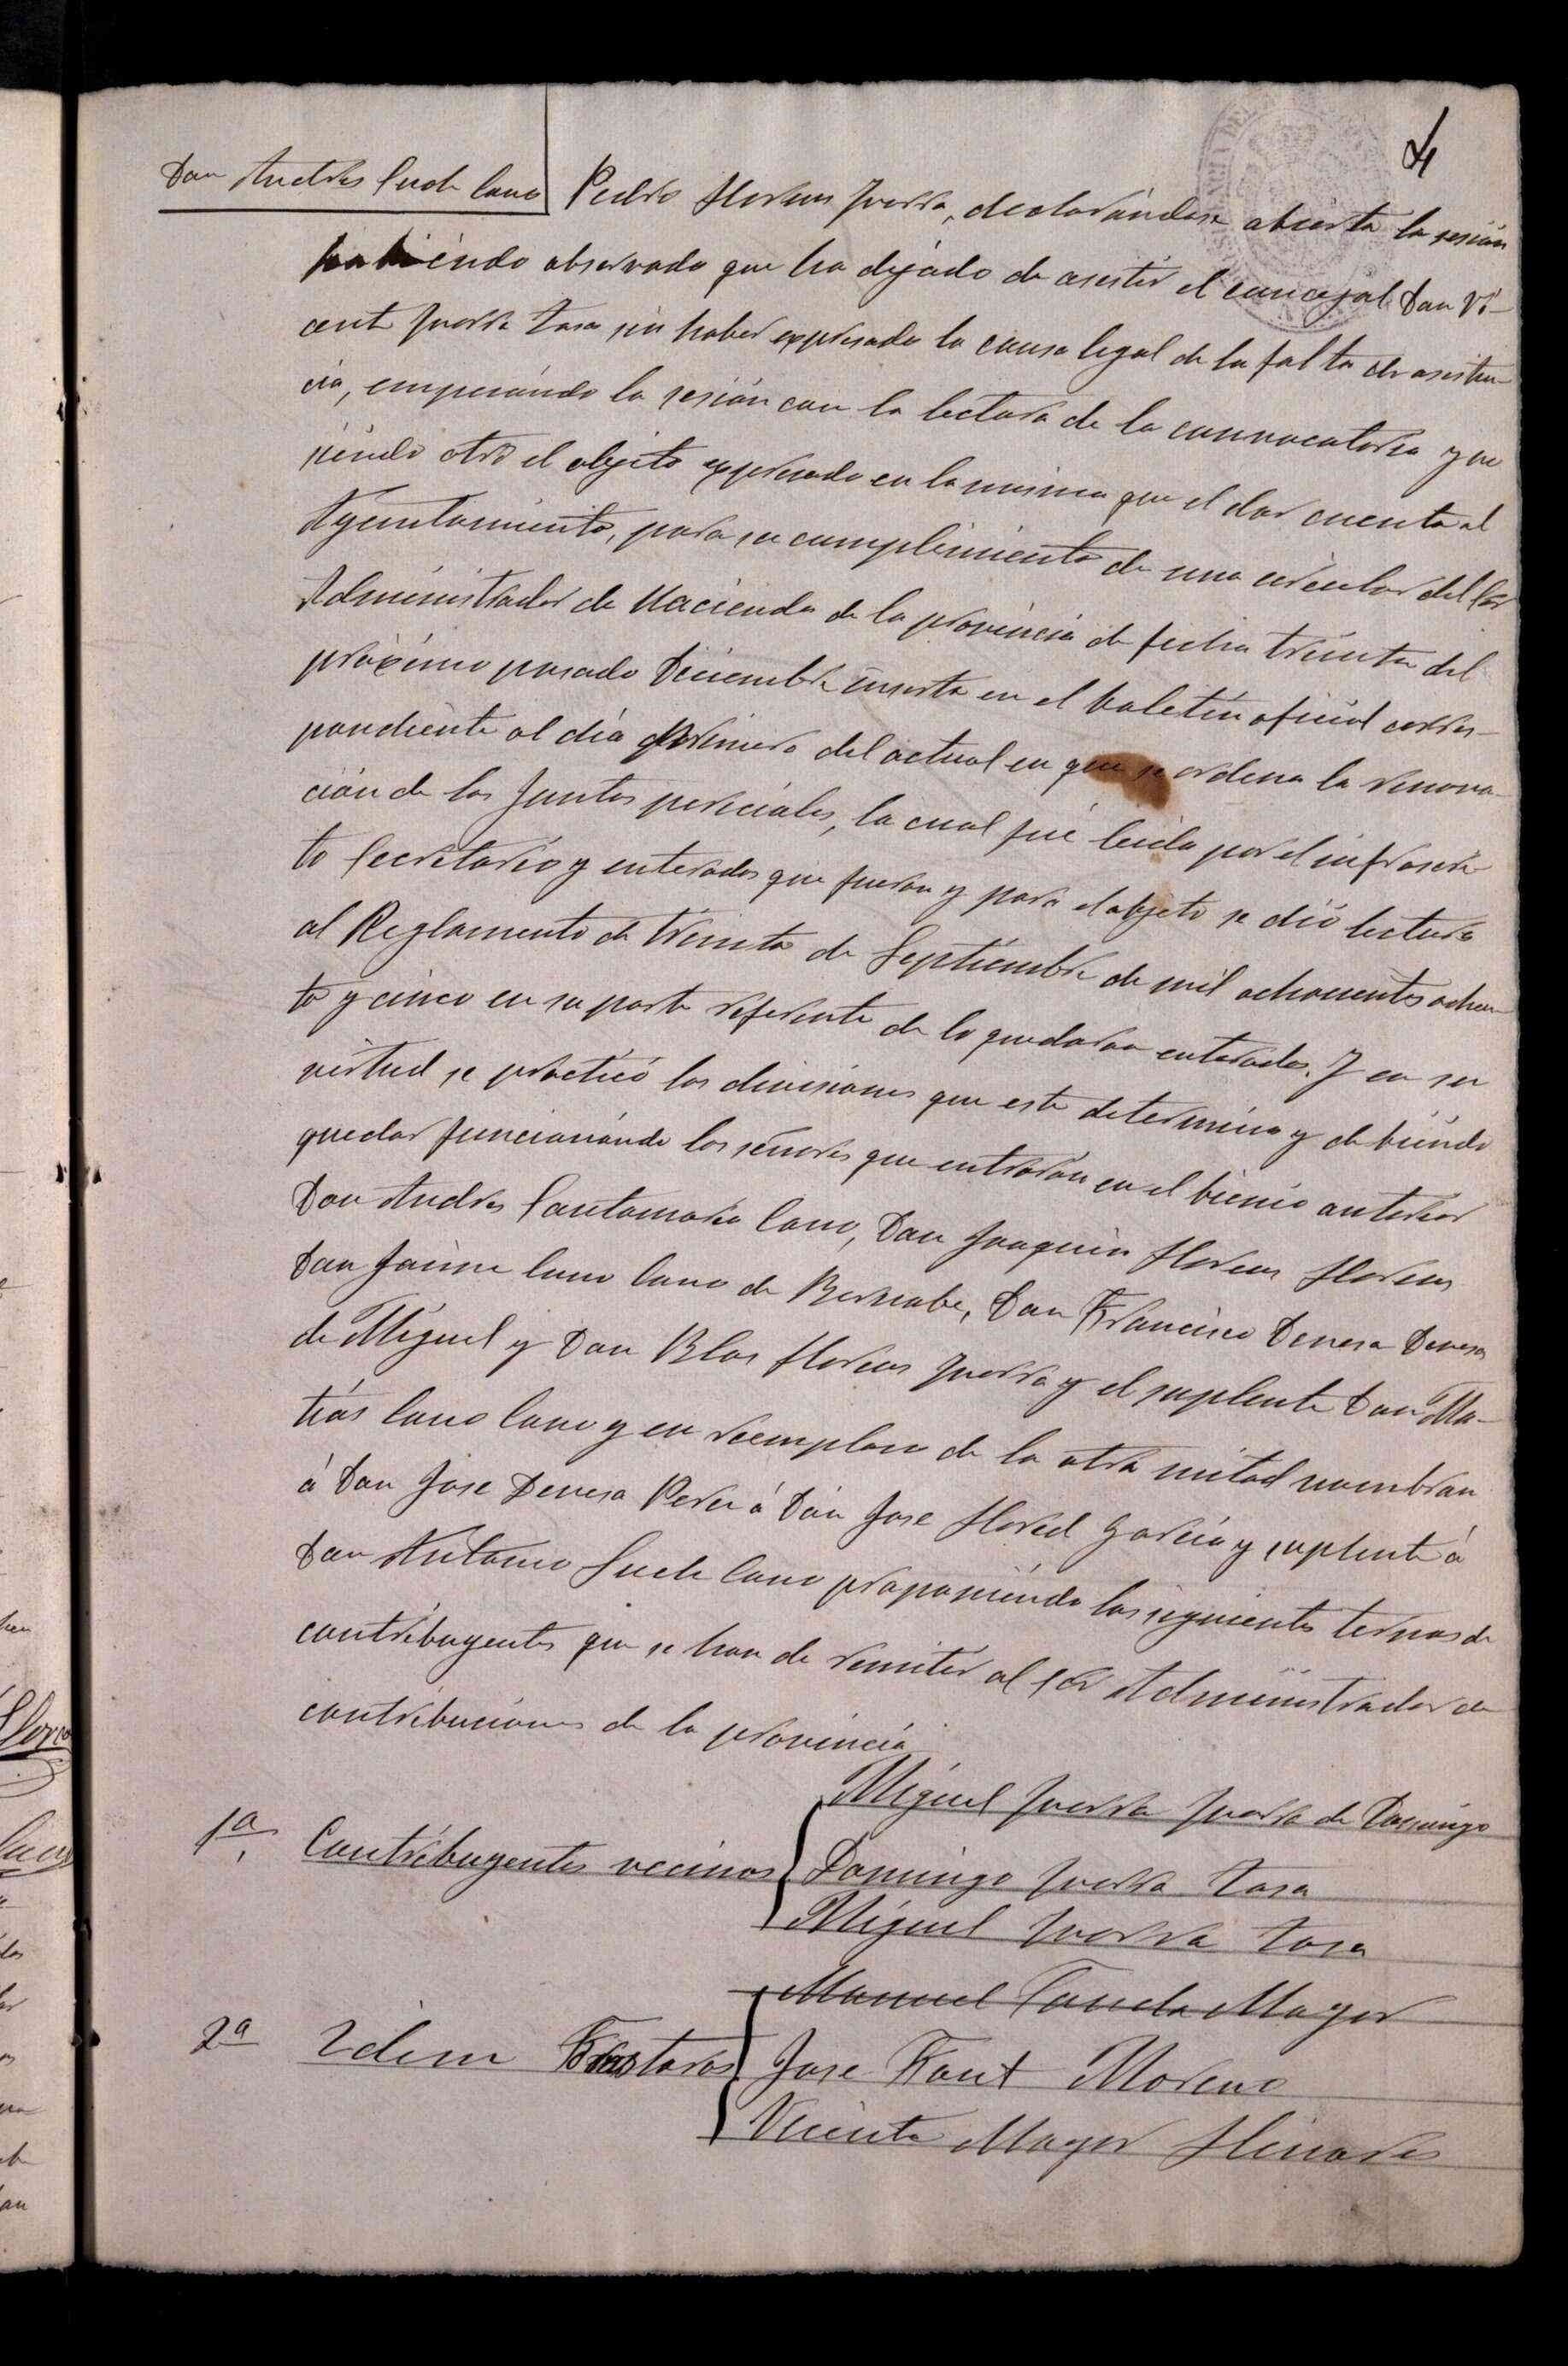 4
Don Andres Such Cano
Pedro Llorens Yvorra, declarándose abierta la sesión
habiendo observado que ha dejado de asistir el concejal Don Vi-
cente Yvorra Zara sin haber expresado la causa legal de la falta de asisten-
cia, empezándo la sesión con la lectura de la convocatoria y no
siéndo otro el objeto expresado en la misma que el dar cuenta al
Ayuntamiento, para su cumplimiento de una circular del Sor
Administrador de Hacienda de la provincia de fecha treinta del
próximo pasado Diciembre inserta en el boletín oficial corres-
pondiente al día primero del actual en que se ordena la renova-
ción de las Juntas periciales, la cual fué leida por el infrascri-
to Secretario y enterados que fueron y para el objeto se dió lectura
al Reglamento de treinta de Septiembre de mil ochocientos ochen-
ta y cinco en su parte referente de lo quedaron enterados. Y en su
virtud se practicó las divisiones que este determina y debiéndo
quedar funcionándo los señores que entraron en el bienio anterior
Don Andres Santamaria Cano, Don Joaquin Llorens Llorens
Don Jaime Cano Cano de Bernabe, Don Francisco Devesa Devesa
de Miguel y Don Blas Llorens Yvorra y el suplente Don Ma-
tías Cano Cano y en reemplazo de la otra mitad nombran
á Don Jose Devesa Perez á Don Jose Llored Garcia y suplente á
Don Antonio Such Cano proponiéndo las siguientes ternas de
contribuyentes que se han de remitir al Sor Administrador de
contribuciones de la provincia
Miguel Yvorra Yvorra de Domingo
1ª Contribuyentes vecinos Domingo Yvorra Zara
Miguel Yvorra Zara
Manuel Mayor
2ª Idem Jose Font Moreno
Vicente Mayor Llinares